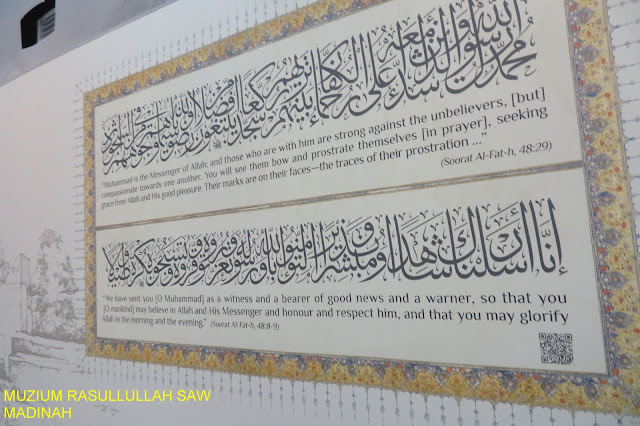 محمد رسول الله والذين معه أشداء على الكفار رحماء بينهم تراهم ركعا سجدا يبتغون فضلا من الله ورضوانا سيماهم في وجوههم من أثر السجود
"Muhammad is the Messenger of Allah; and those who are with him are strong against the unbelievers, [but]
compassionate towards one another. You will see them bow and prostrate themselves [in prayer], seeking
grace from Allah and His good pleasure. Their marks are on their faces—the traces of their prostration ..."
(Soorat Al-Fat-h, 48:29)
إنا أرسلناك شاهدا ومبشرا ونذيرا لتؤمنوا بالله ورسوله وتعزروه وتوقروه وتسبحوه بكرة وأصيلا
"We have sent you [O Muhammad] as a witness and a bearer of good news and a warner, so that you
[O mankind] may believe in Allah and His Messenger and honour and respect him, and that you may glorify
Allah in the morning and the evening." (Soorat Al-Fat-h, 48:8-9)
MUZIUM RASULLULLAH SAW
MADINAH